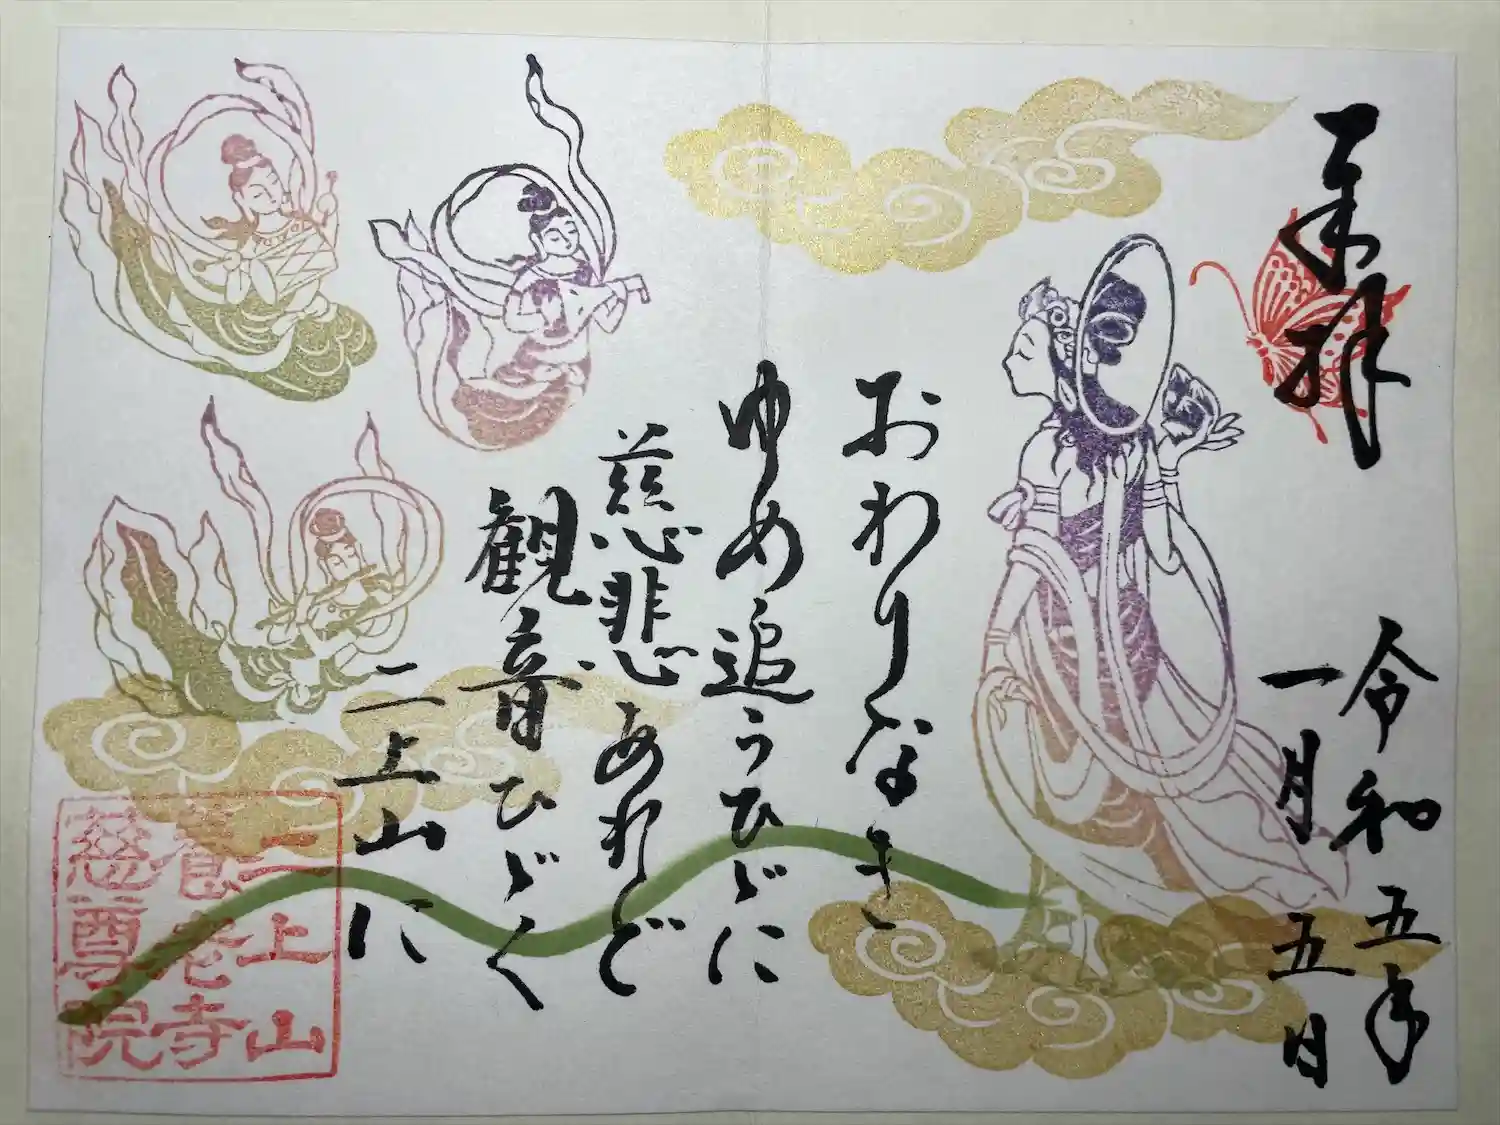 奉拝
令和五年
一月五日
おわりなき
ゆめ追うひゞに
慈悲あれど
観音ひゞく
二上山に
二上山
養老寺
慈尊院